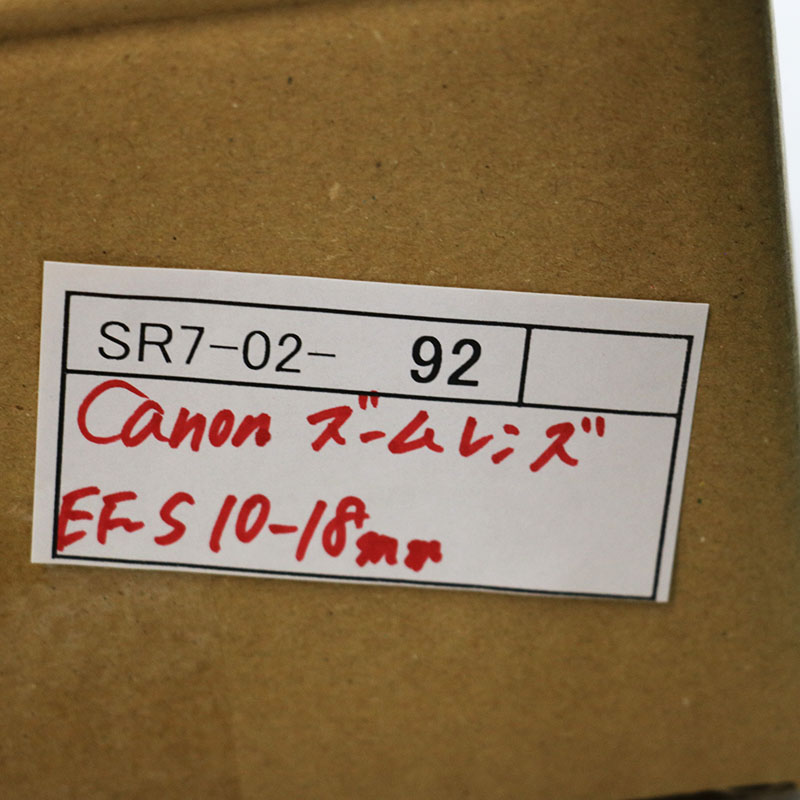 SR7-02- 92
Canon ズームレンズ
EF-S 10-18mm